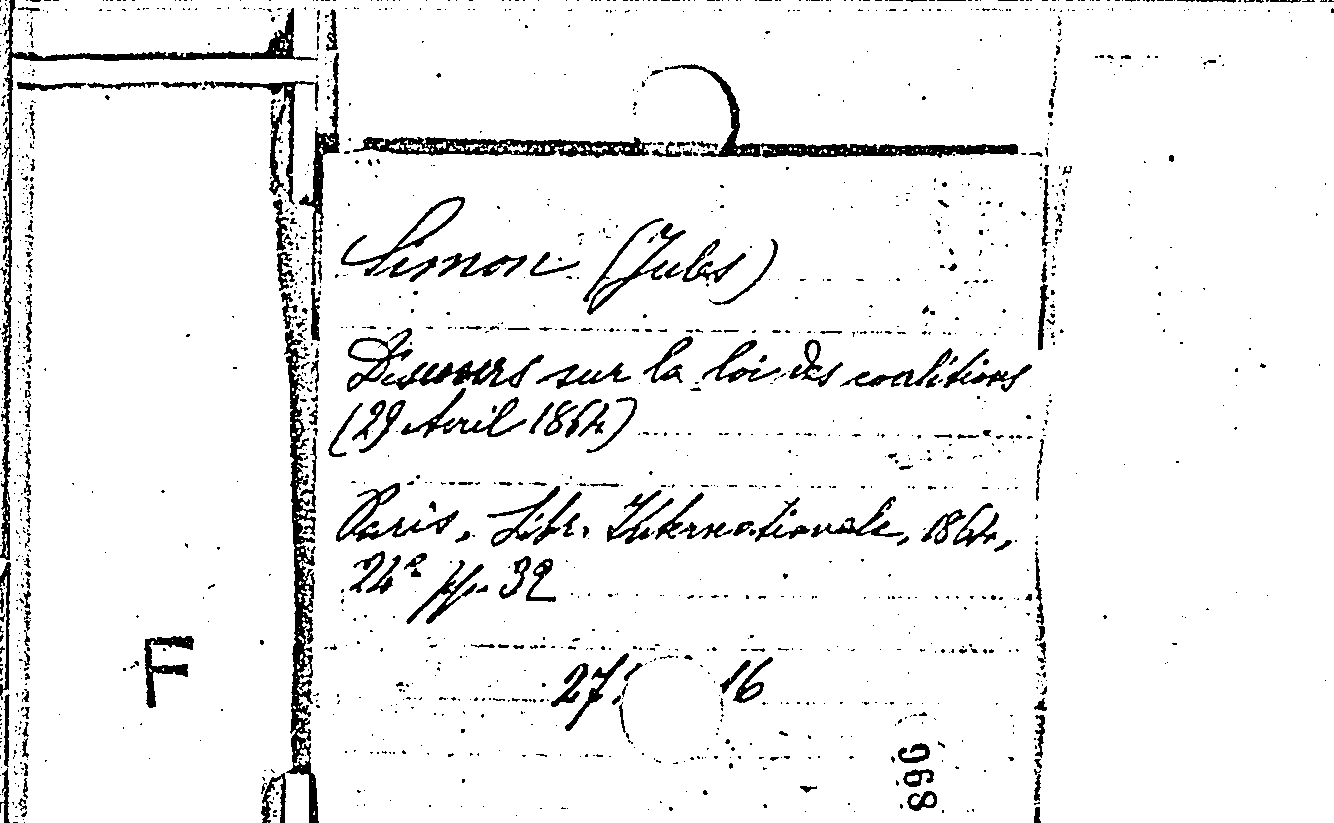 Simon (Jules)
Discours sur la loi des coalitions
(29 Avril 1864)
Paris, Libr. Internationale, 1864,
24° pp. 32
27 16
F
968